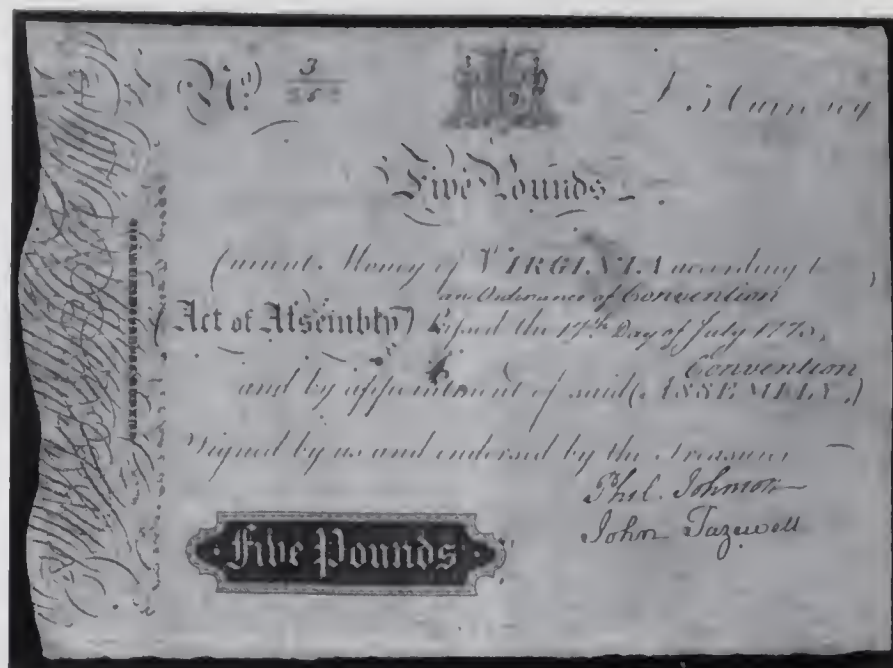 No. 3
£ 5 Currency
Five Pounds
Current Money of VIRGINIA according to
an Ordinance of Convention
Act of Assembly) Passed the 17th Day of July 1775,
Convention
and by appointment of said (ASSEMBLY,)
Signed by us and endorsed by the Treasurer
Phil. Johnson
John Tazewell
Five Pounds